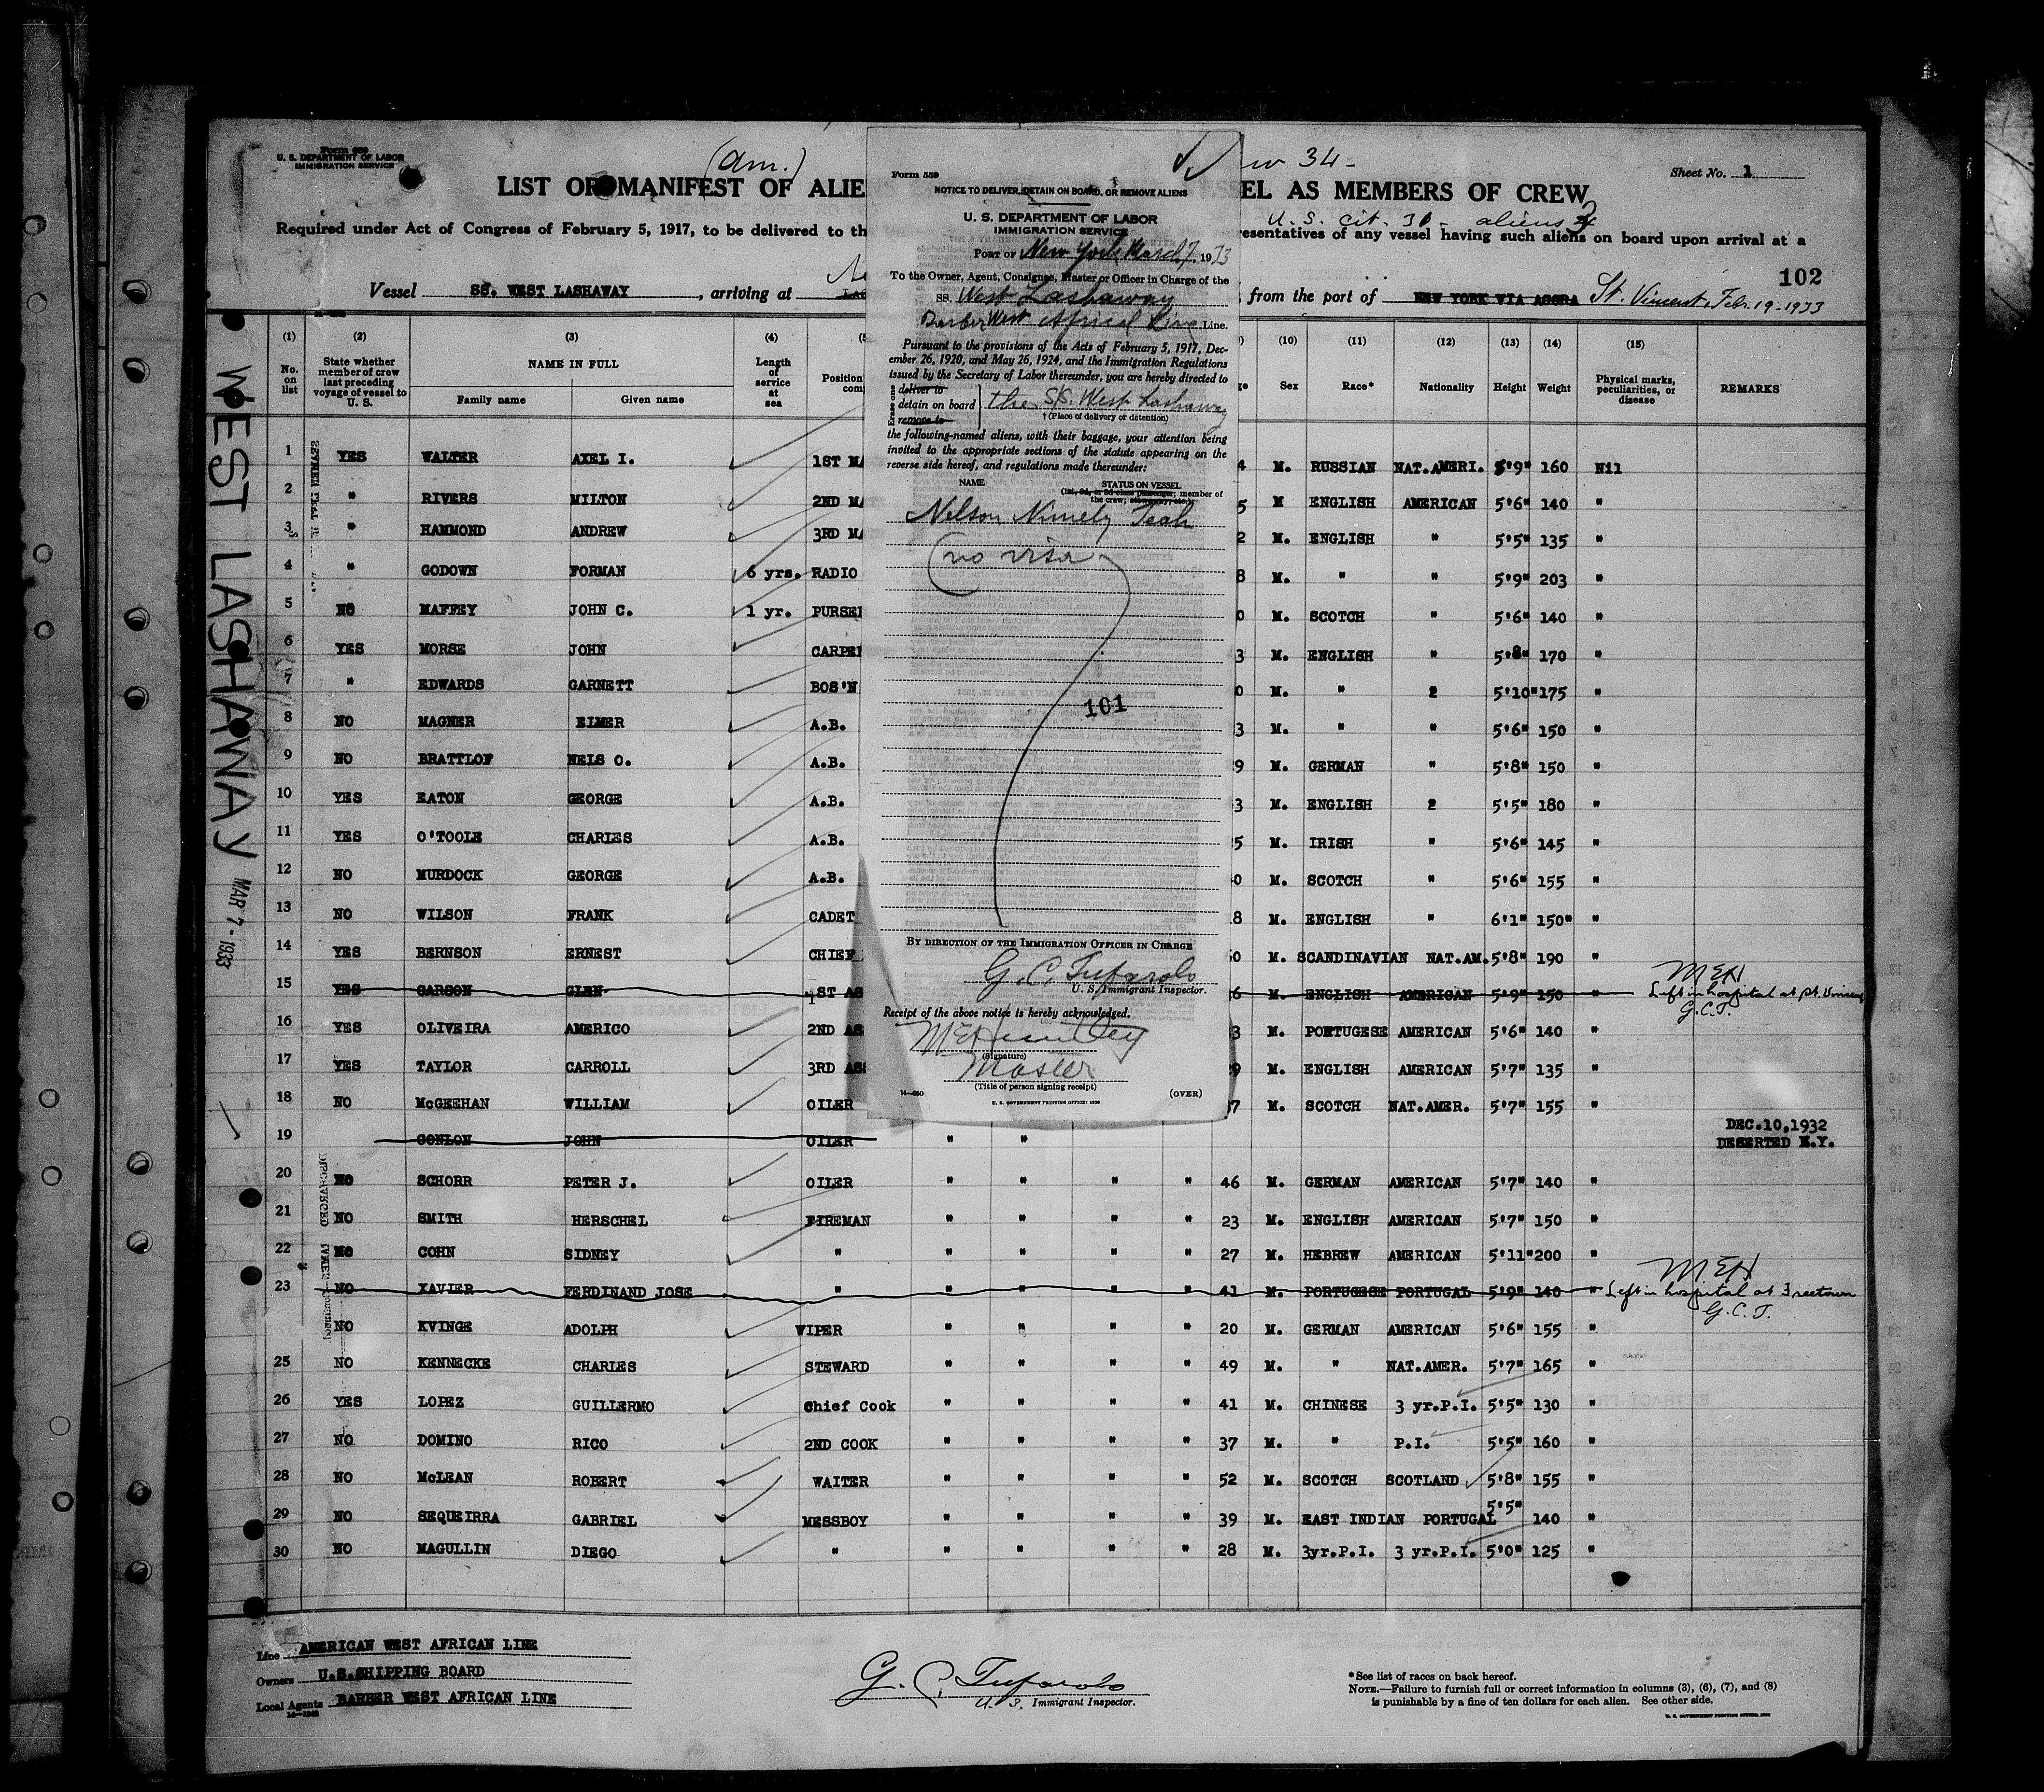 Form 689
U. S. DEPARTMENT OF LABOR
IMMIGRATION SERVICE
(Am.)
34-
Sheet No. 1
LIST OR MANIFEST OF ALIE
EL AS MEMBERS OF CREW
U.S. cit. 31 - aliens 3
Required under Act of Congress of February 5, 1917, to be delivered to th
resentatives of any vessel having such aliens on board upon arrival at a
102
Vessel SS. WEST LASHAWAY , arriving at
, from the port of NEW YORK VIA ACCRA St. Vincent, Feb. 19-1933
Form 559
NOTICE TO DELIVER, DETAIN ON BOARD, OR REMOVE ALIENS
U. S. DEPARTMENT OF LABOR
IMMIGRATION SERVICE
PORT OF New York March 7, 1933
To the Owner, Agent, Consignee, Master or Officer in Charge of the
SS. West Lashaway
Barber West African Line Line.
Pursuant to the provisions of the Acts of February 5, 1917, Dec-
ember 26, 1920, and May 26, 1924, and the Immigration Regulations
issued by the Secretary of Labor thereunder, you are hereby directed to
Erase one
deliver to
detain on board the S/S. West Lashaway
remove to
† (Place of delivery or detention)
the following-named aliens, with their baggage, your attention being
invited to the appropriate sections of the statute appearing on the
reverse side hereof, and regulations made thereunder:
NAME STATUS ON VESSEL
(1st, 2d, or 3d class passenger; member of
the crew; stowaway, etc.)
Nelson Nimely Teah
(no visa)
101
BY DIRECTION OF THE IMMIGRATION OFFICER IN CHARGE
G. C. Tufarolo
U. S. Immigrant Inspector.
Receipt of the above notice is hereby acknowledged.
(Signature)
Master
(Title of person signing receipt)
14-460 (OVER)
U. S. GOVERNMENT PRINTING OFFICE: 1930
WEST LASHAWAY MAR 7 - 1933
(1) (2) (3) (4) (10) (11) (12) (13) (14) (15)
No. on list
State whether member of crew last preceding voyage of vessel to U. S.
NAME IN FULL
Family name Given name
Length of service at sea
Position
com
Sex Race* Nationality Height Weight
Physical marks, peculiarities, or disease
REMARKS
1 YES WALTER AXEL I. 1ST MA 4 M. RUSSIAN NAT.AMERI. 5'9" 160 Nil
2 " RIVERS MILTON 2ND MA 5 M ENGLISH AMERICAN 5'6" 140 "
3 " HAMMOND ANDREW 3RD MA 2 M. ENGLISH " 5'5" 135 "
4 " GODOWN FORMAN 6 yrs. RADIO 8 M. " " 5'9" 203 "
5 NO MAFFEY JOHN C. 1 yr. PURSE 0 M. SCOTCH " 5'6" 140 "
6 YES MORSE JOHN CARPE 3 M. ENGLISH " 5'8" 170 "
7 " EDWARDS GARNETT BOS'N 0 M. " 2 5'10" 175 "
8 NO MAGNER ELMER A.B. 3 M. " " 5'6" 150 "
9 NO BRATTLOF NELS O. A.B. 9 M. GERMAN " 5'8" 150 "
10 YES EATON GEORGE A.B. 3 M. ENGLISH 2 5'5" 180 "
11 YES O'TOOLE CHARLES A.B. 5 M. IRISH " 5'6" 145 "
12 NO MURDOCK GEORGE A.B. 0 M. SCOTCH " 5'6" 155 "
13 NO WILSON FRANK CADET 8 M. ENGLISH " 6'1" 150" "
14 YES BERNSON ERNEST CHIEF 0 M. SCANDINAVIAN NAT.AM. 5'8" 190 "
15 YES CARSON GLEN 1ST AS 6 M. ENGLISH AMERICAN 5'9" 150 " MEH Left in hospital at St. Vincent G.C.T.
16 YES OLIVEIRA AMERICO 2ND AS 3 M. PORTUGESE AMERICAN 5'6" 140 "
17 YES TAYLOR CARROLL 3RD ASS 9 M. ENGLISH AMERICAN 5'7" 135 "
18 NO McGEEHAN WILLIAM OILER 7 M. SCOTCH NAT.AMER. 5'7" 155 "
19 CONLON JOHN OILER " " DEC.10,1932 DESERTED N.Y.
20 NO SCHORR PETER J. OILER " " " " 46 M. GERMAN AMERICAN 5'7" 140 "
21 NO SMITH HERSCHEL FIREMAN " " " " 23 M. ENGLISH AMERICAN 5'7" 150 "
22 NO COHN SIDNEY " " " " " 27 M. HEBREW AMERICAN 5'11" 200 "
23 NO XAVIER FERDINAND JOSE " " " " " 41 M. PORTUGESE PORTUGAL 5'9" 140 " MEH Left in hospital at Freetown G.C.T.
NO KVINGE ADOLPH WIPER " " " " 20 M. GERMAN AMERICAN 5'6" 155 "
25 NO KENNECKE CHARLES STEWARD " " " " 49 M. " NAT.AMER. 5'7" 165 "
26 YES LOPEZ GUILLERMO Chief Cook " " " " 41 M. CHINESE 3 yr.P.I. 5'5" 130 "
27 NO DOMINO RICO 2ND COOK " " " " 37 M. " P.I. 5'5" 160 "
28 NO McLEAN ROBERT WAITER " " " " 52 M. SCOTCH SCOTLAND 5'8" 155 "
29 NO SEQUEIRRA GABRIEL MESSBOY " " " " 39 M. EAST INDIAN PORTUGAL 5'5" 140 "
30 NO MAGULLIN DIEGO " " " " " 28 M. 3yr.P.I. 3 yr.P.I. 5'0" 125 "
Line AMERICAN WEST AFRICAN LINE
Owners U.S.SHIPPING BOARD
Local Agents BARBER WEST AFRICAN LINE
G. C. Tufarolo
U. S. Immigrant Inspector.
*See list of races on back hereof.
NOTE.—Failure to furnish full or correct information in columns (3), (6), (7), and (8)
is punishable by a fine of ten dollars for each alien. See other side.